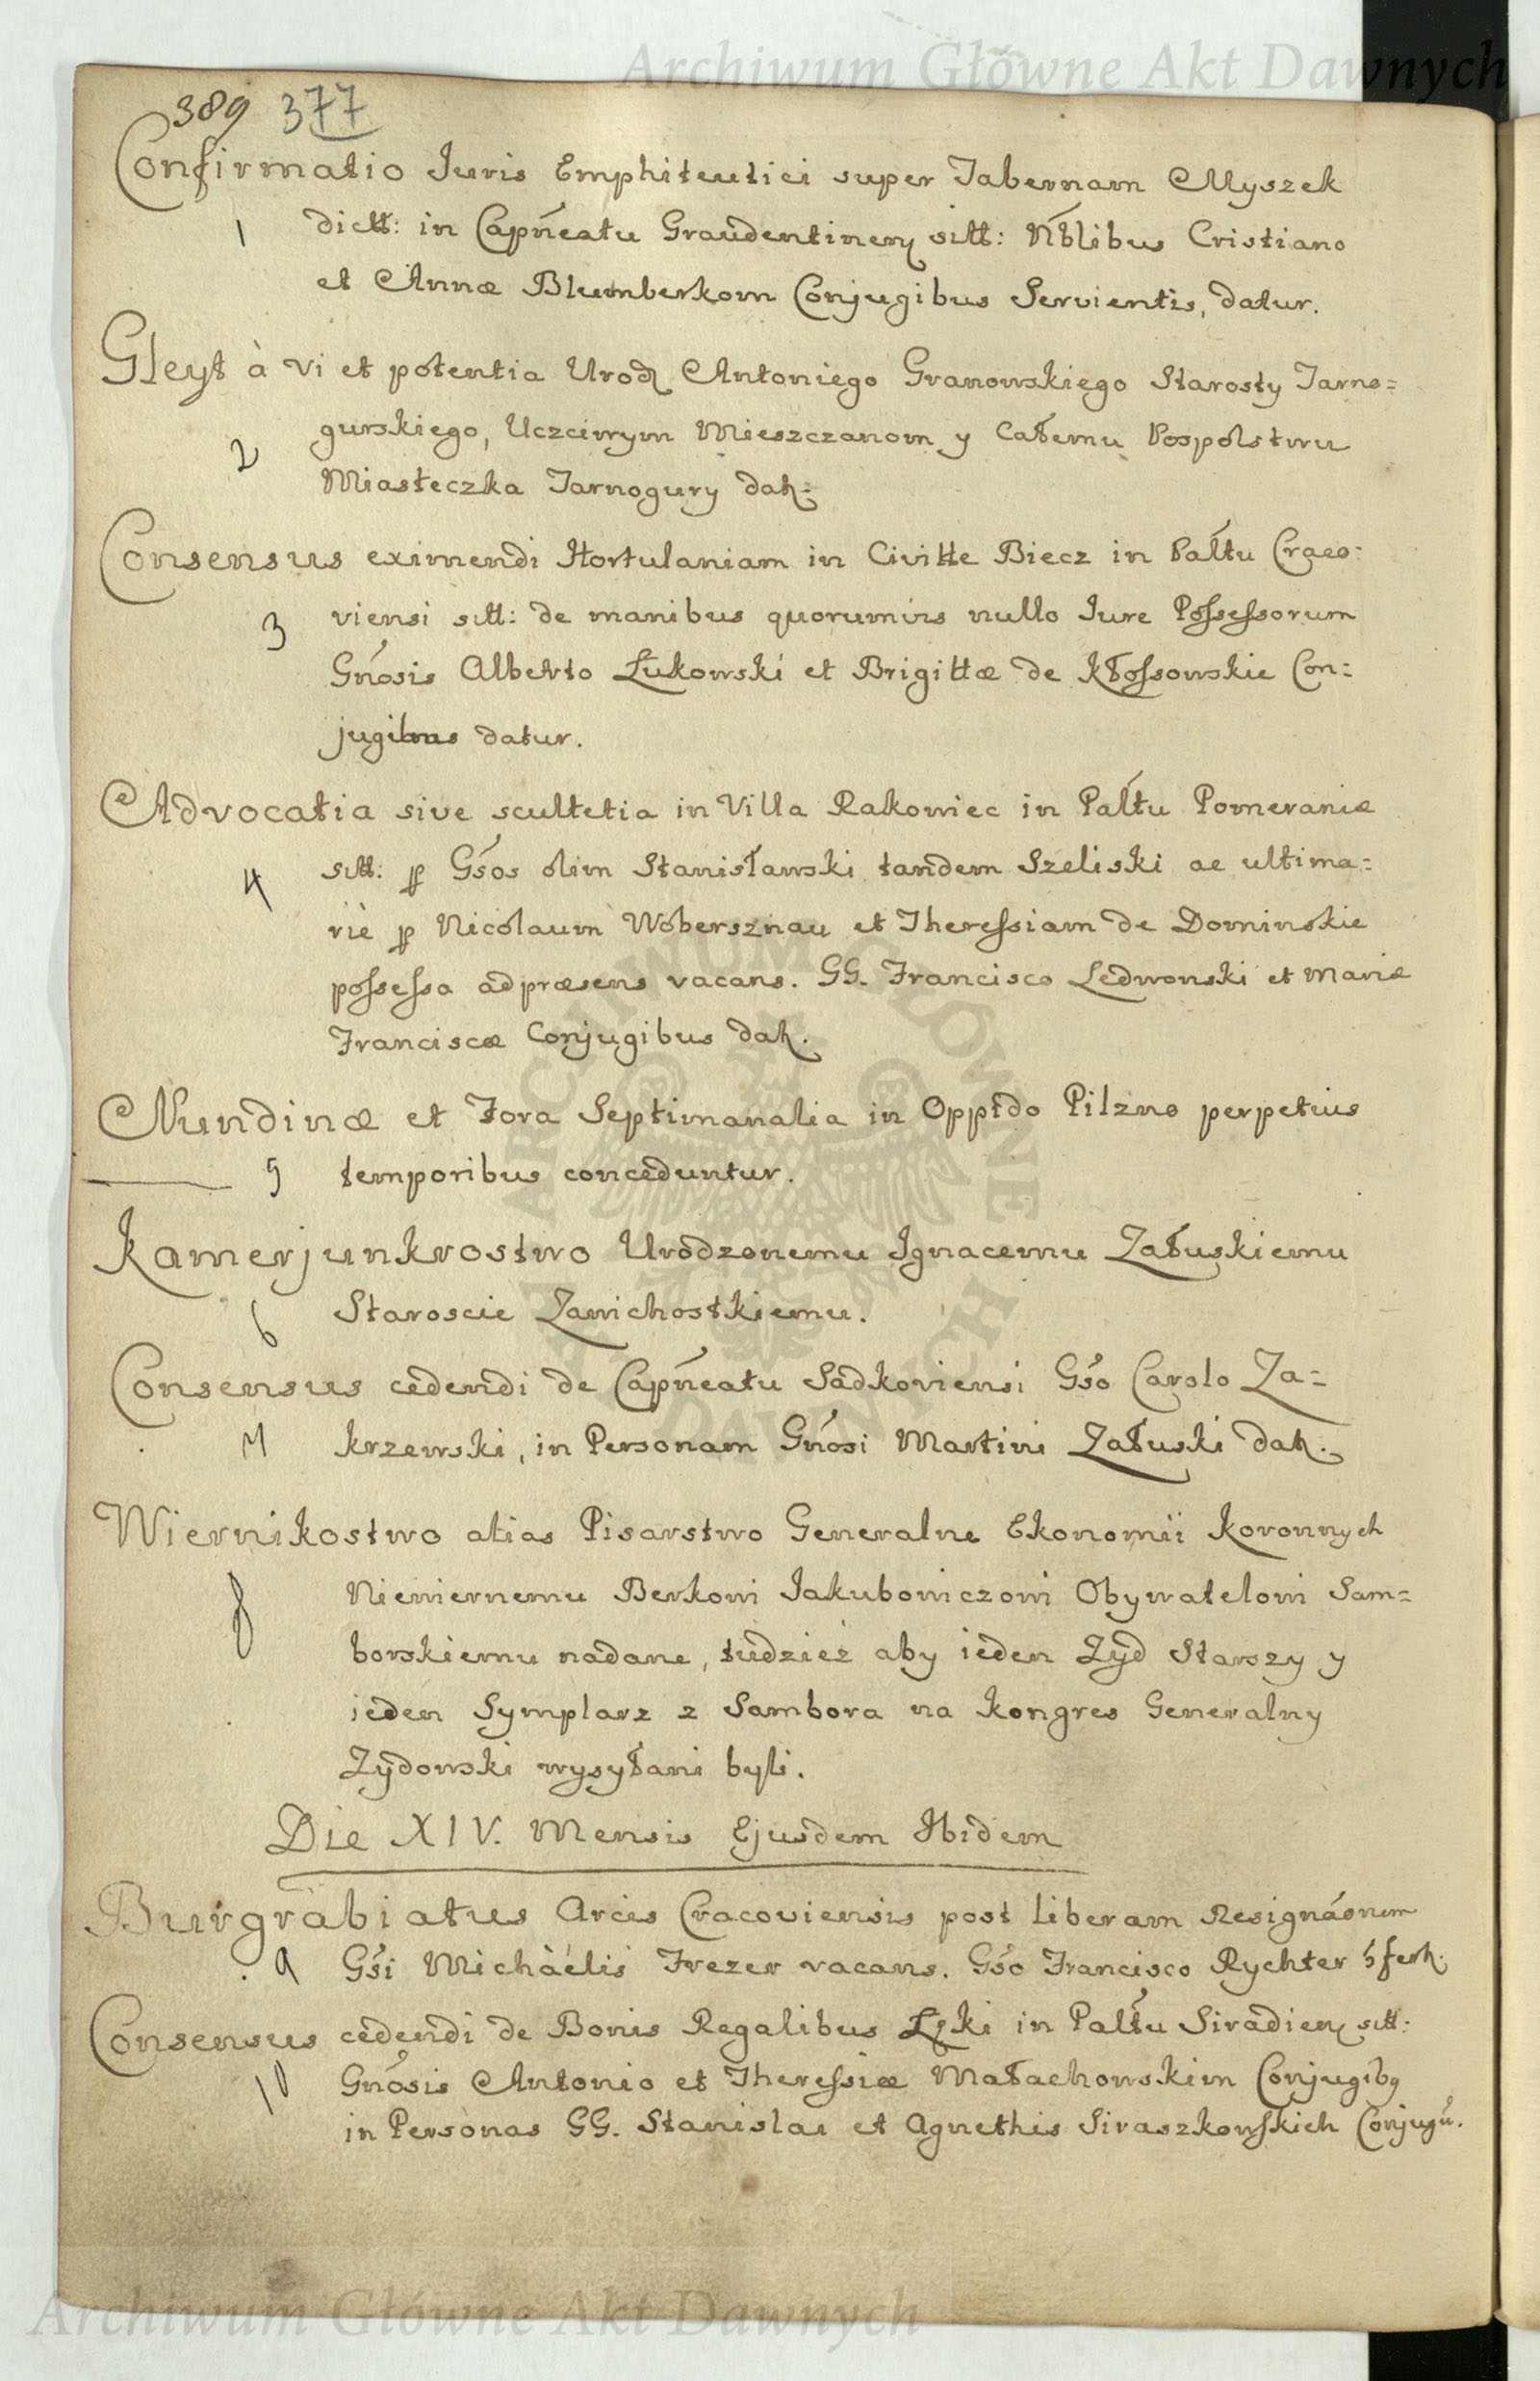 Archiwum Główne Akt Dawnych
389 377
Confirmatio Juris Emphiteutici super Tabernam Myszek
1 dictt: in Capńeatu Graudentinen sitt: Nblibus Cristiano
et Annæ Blumberkom Conjugibus Servientis, datur.
Gleyt à vi et potentia Urod Antoniego Granowskiego Starosty Tarno=
2 gurskiego, Uczciwym Mieszczanom y Całemu Pospolstwu
Miasteczka Tarnogury dat:
Consensus eximendi Hortulaniam in Civitte Biecz in Palttu Craco:
3 viensi sitt: de manibus quorumvis nullo Jure Possessorum
Gnosis Alberto Łukowski et Brigittæ de Kłossowskie Con:
jugibus datur.
Advocatia sive scultetia in Villa Rakowiec in Palttu Pomeraniæ
4 sitt: p Gsos olim Stanisławski tandem Szeliski ac ultima:
riè p Nicolaum Wobersznau et Theressiam de Dominskie
possessa ad præsens vacans. GG. Francisco Ledwonski et Mariæ
Franciscæ Conjugibus dat.
Nundinæ et Fora Septimanalia in Oppido Pilzno perpetuis
5 temporibus conceduntur.
Kamerjunkrostwo Urodzonemu Ignacemu Załuskiemu
6 Staroscie Zawichostkiemu.
Consensus cedendi de Capńeatu Sadkoviensi Gso Carolo Za=
7 krzewski, in Personam Gnosi Martini Załuski dat.
Wiernikostwo alias Pisarstwo Generalne Ekonomii Koronnych
8 Niewiernemu Berkowi Jakubowiczowi Obywatelowi Sam=
borskiemu nadane, tudziez aby ieden Zyd Starszy y
ieden Symplarz z Sambora na Kongres Generalny
Zydowski wysyłani byli.
Die XIV. Mensis Ejusdem Ibidem
Burgrabiatus Arcis Cracoviensis post liberam Resignáonem
9 Gsi Michaelis Frezer vacans. Gso Francisco Rychter
Consensus cedendi de Bonis Regalibus Łęki in Palttu Siradien sitt:
10 Gnosis Antonio et Theressiæ Małachowskim Conjugibq
in Personas GG. Stanislai et Agnethis Siraszkowskich Conjugu.
Archiwum Główne Akt Dawnych